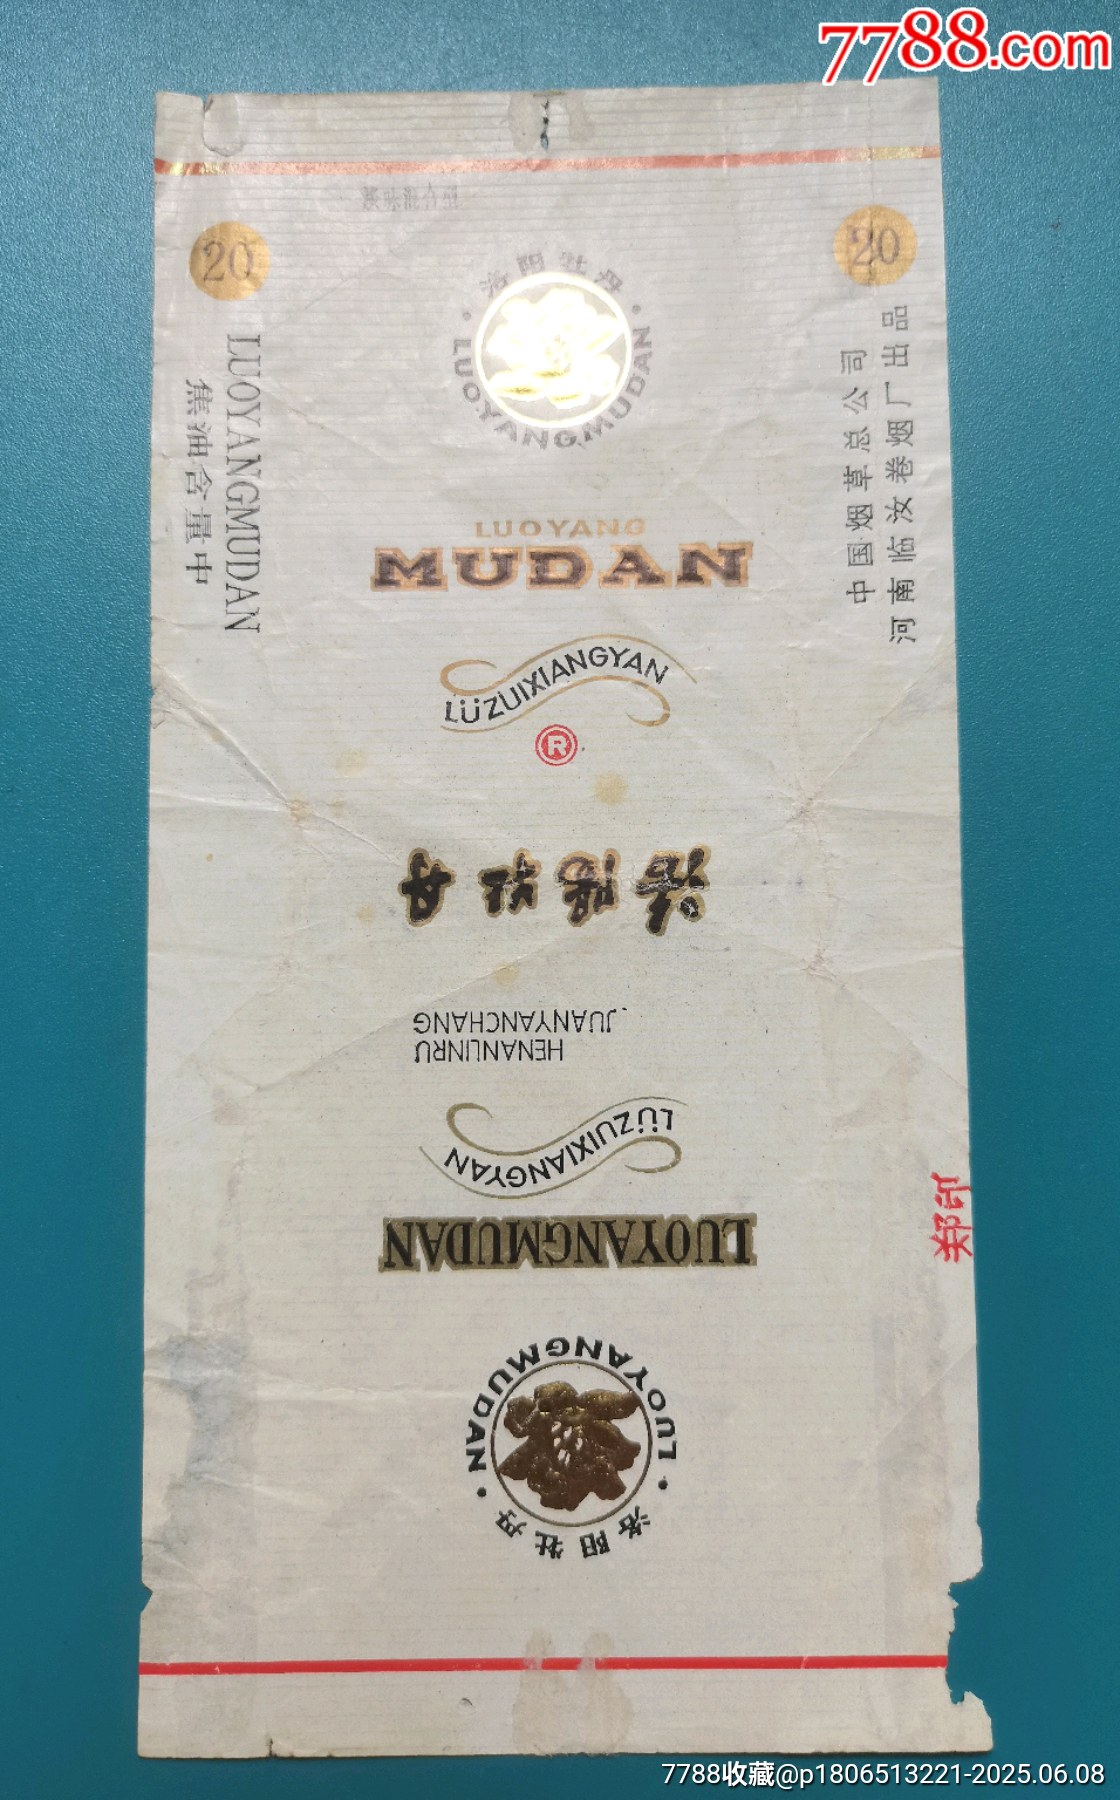 7788.com
20
20
LUOYANGMUDAN
焦油含量中
中国烟草总公司
河南临汝卷烟厂出品
洛阳牡丹
· LUOYANGMUDAN ·
LUOYANG
MUDAN
LÜZUIXIANGYAN
R
洛阳牡丹
HENANLINRU
JUANYANCHANG
LÜZUIXIANGYAN
LUOYANGMUDAN
· LUOYANGMUDAN ·
洛阳牡丹
郑印
7788收藏@p1806513221-2025.06.08